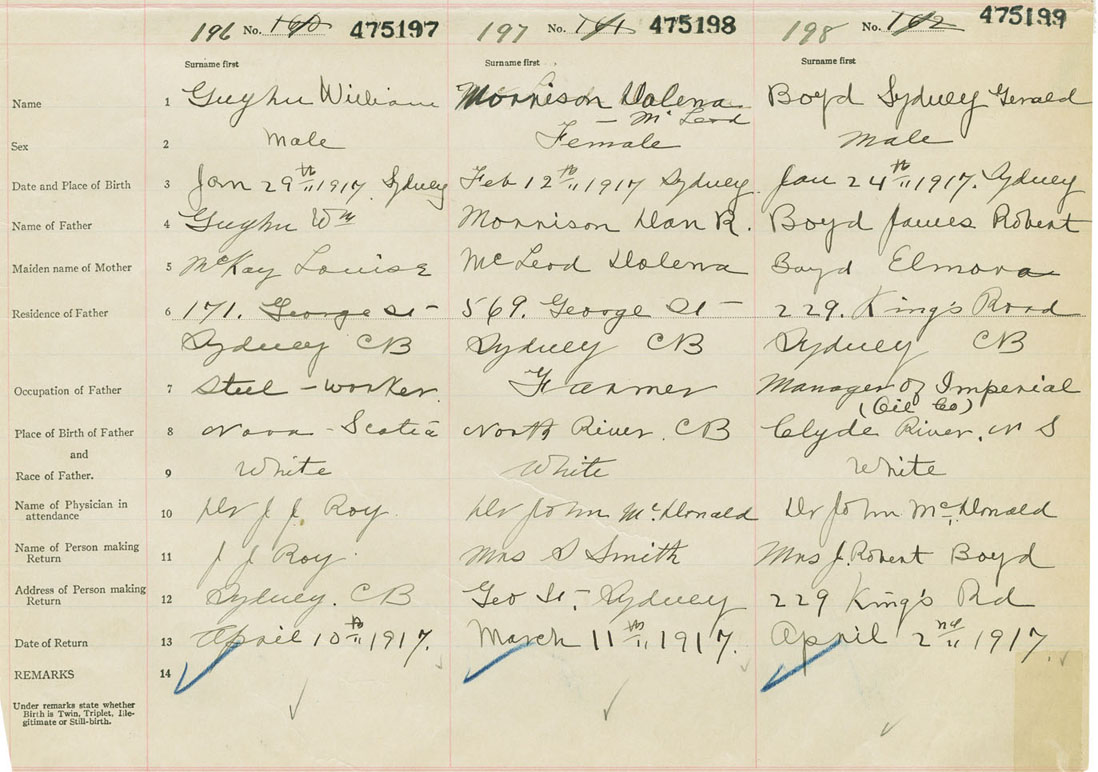 196 No. 190 475197 197 No. 191 475198 198 No. 192 475199
Surname first Surname first Surname first
Name 1 Gughu William Morrison Dolena Boyd Sydney Gerald
— Mc Leod
Sex 2 Male Female Male
Date and Place of Birth 3 Jan 29th 1917. Sydney Feb 12th 1917 Sydney. Jan 24th 1917. Sydney
Name of Father 4 Gughu Wm Morrison Dan R. Boyd James Robert
Maiden name of Mother 5 McKay Louise McLeod Dolena Boyd Elmora
Residence of Father 6 171. George St — 569. George St — 229. King's Road
Sydney CB Sydney CB Sydney CB
Occupation of Father 7 Steel - worker. Farmer Manager of Imperial
(Oil Co)
Place of Birth of Father 8 Nova - Scotia North River. CB Clyde River. N S
and
Race of Father. 9 White White White
Name of Physician in
attendance 10 Dr J. J. Roy. Dr John McDonald Dr John McDonald
Name of Person making
Return 11 J J Roy Mrs S Smith Mrs J. Robert Boyd
Address of Person making
Return 12 Sydney. CB Geo St, Sydney 229 King's Rd
Date of Return 13 April 10th 1917. March 11th 1917. April 2nd 1917.
REMARKS 14
Under remarks state whether
Birth is Twin, Triplet, Ille-
gitimate or Still-birth.